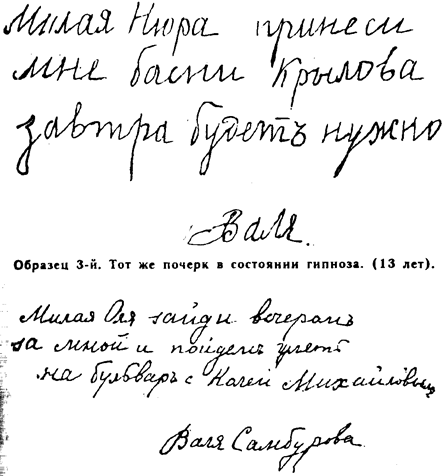 Милая Нюра принеси
мне басни Крылова
завтра будетъ нужно
Валя.
Образец 3-й. Тот же почерк в состоянии гипноза. (13 лет).
Милая Оля зайди вечеромъ
за мной и пойдемъ
на бульваръ с Колей Михайловым
Валя Самбурова